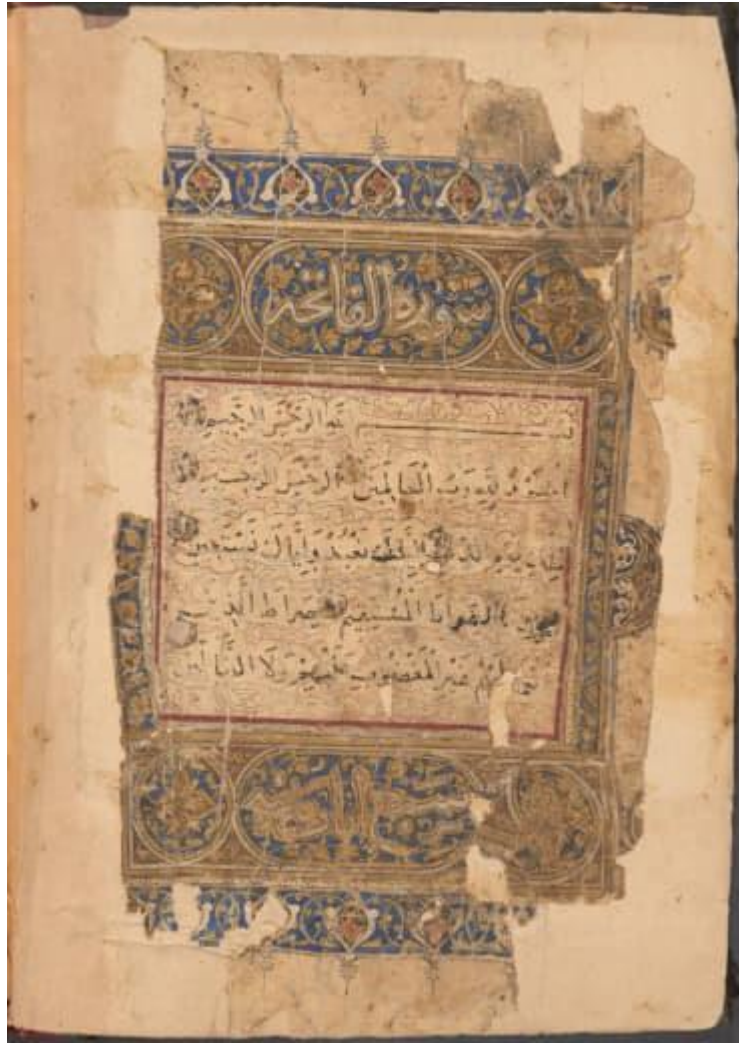 سورة الفاتحة
بسم الله الرحمن الرحيم
الحمد لله رب العالمين الرحمن الرحيم
يوم الدين إياك نعبد وإياك نستعين
اهدنا المستقيم صراط الذين
عليهم غير المغضوب عليهم ولا الضالين